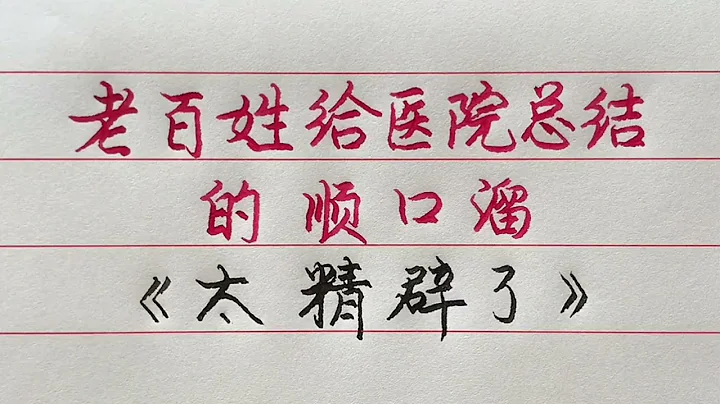 老百姓给医院总结
的顺口溜
《太精辟了》